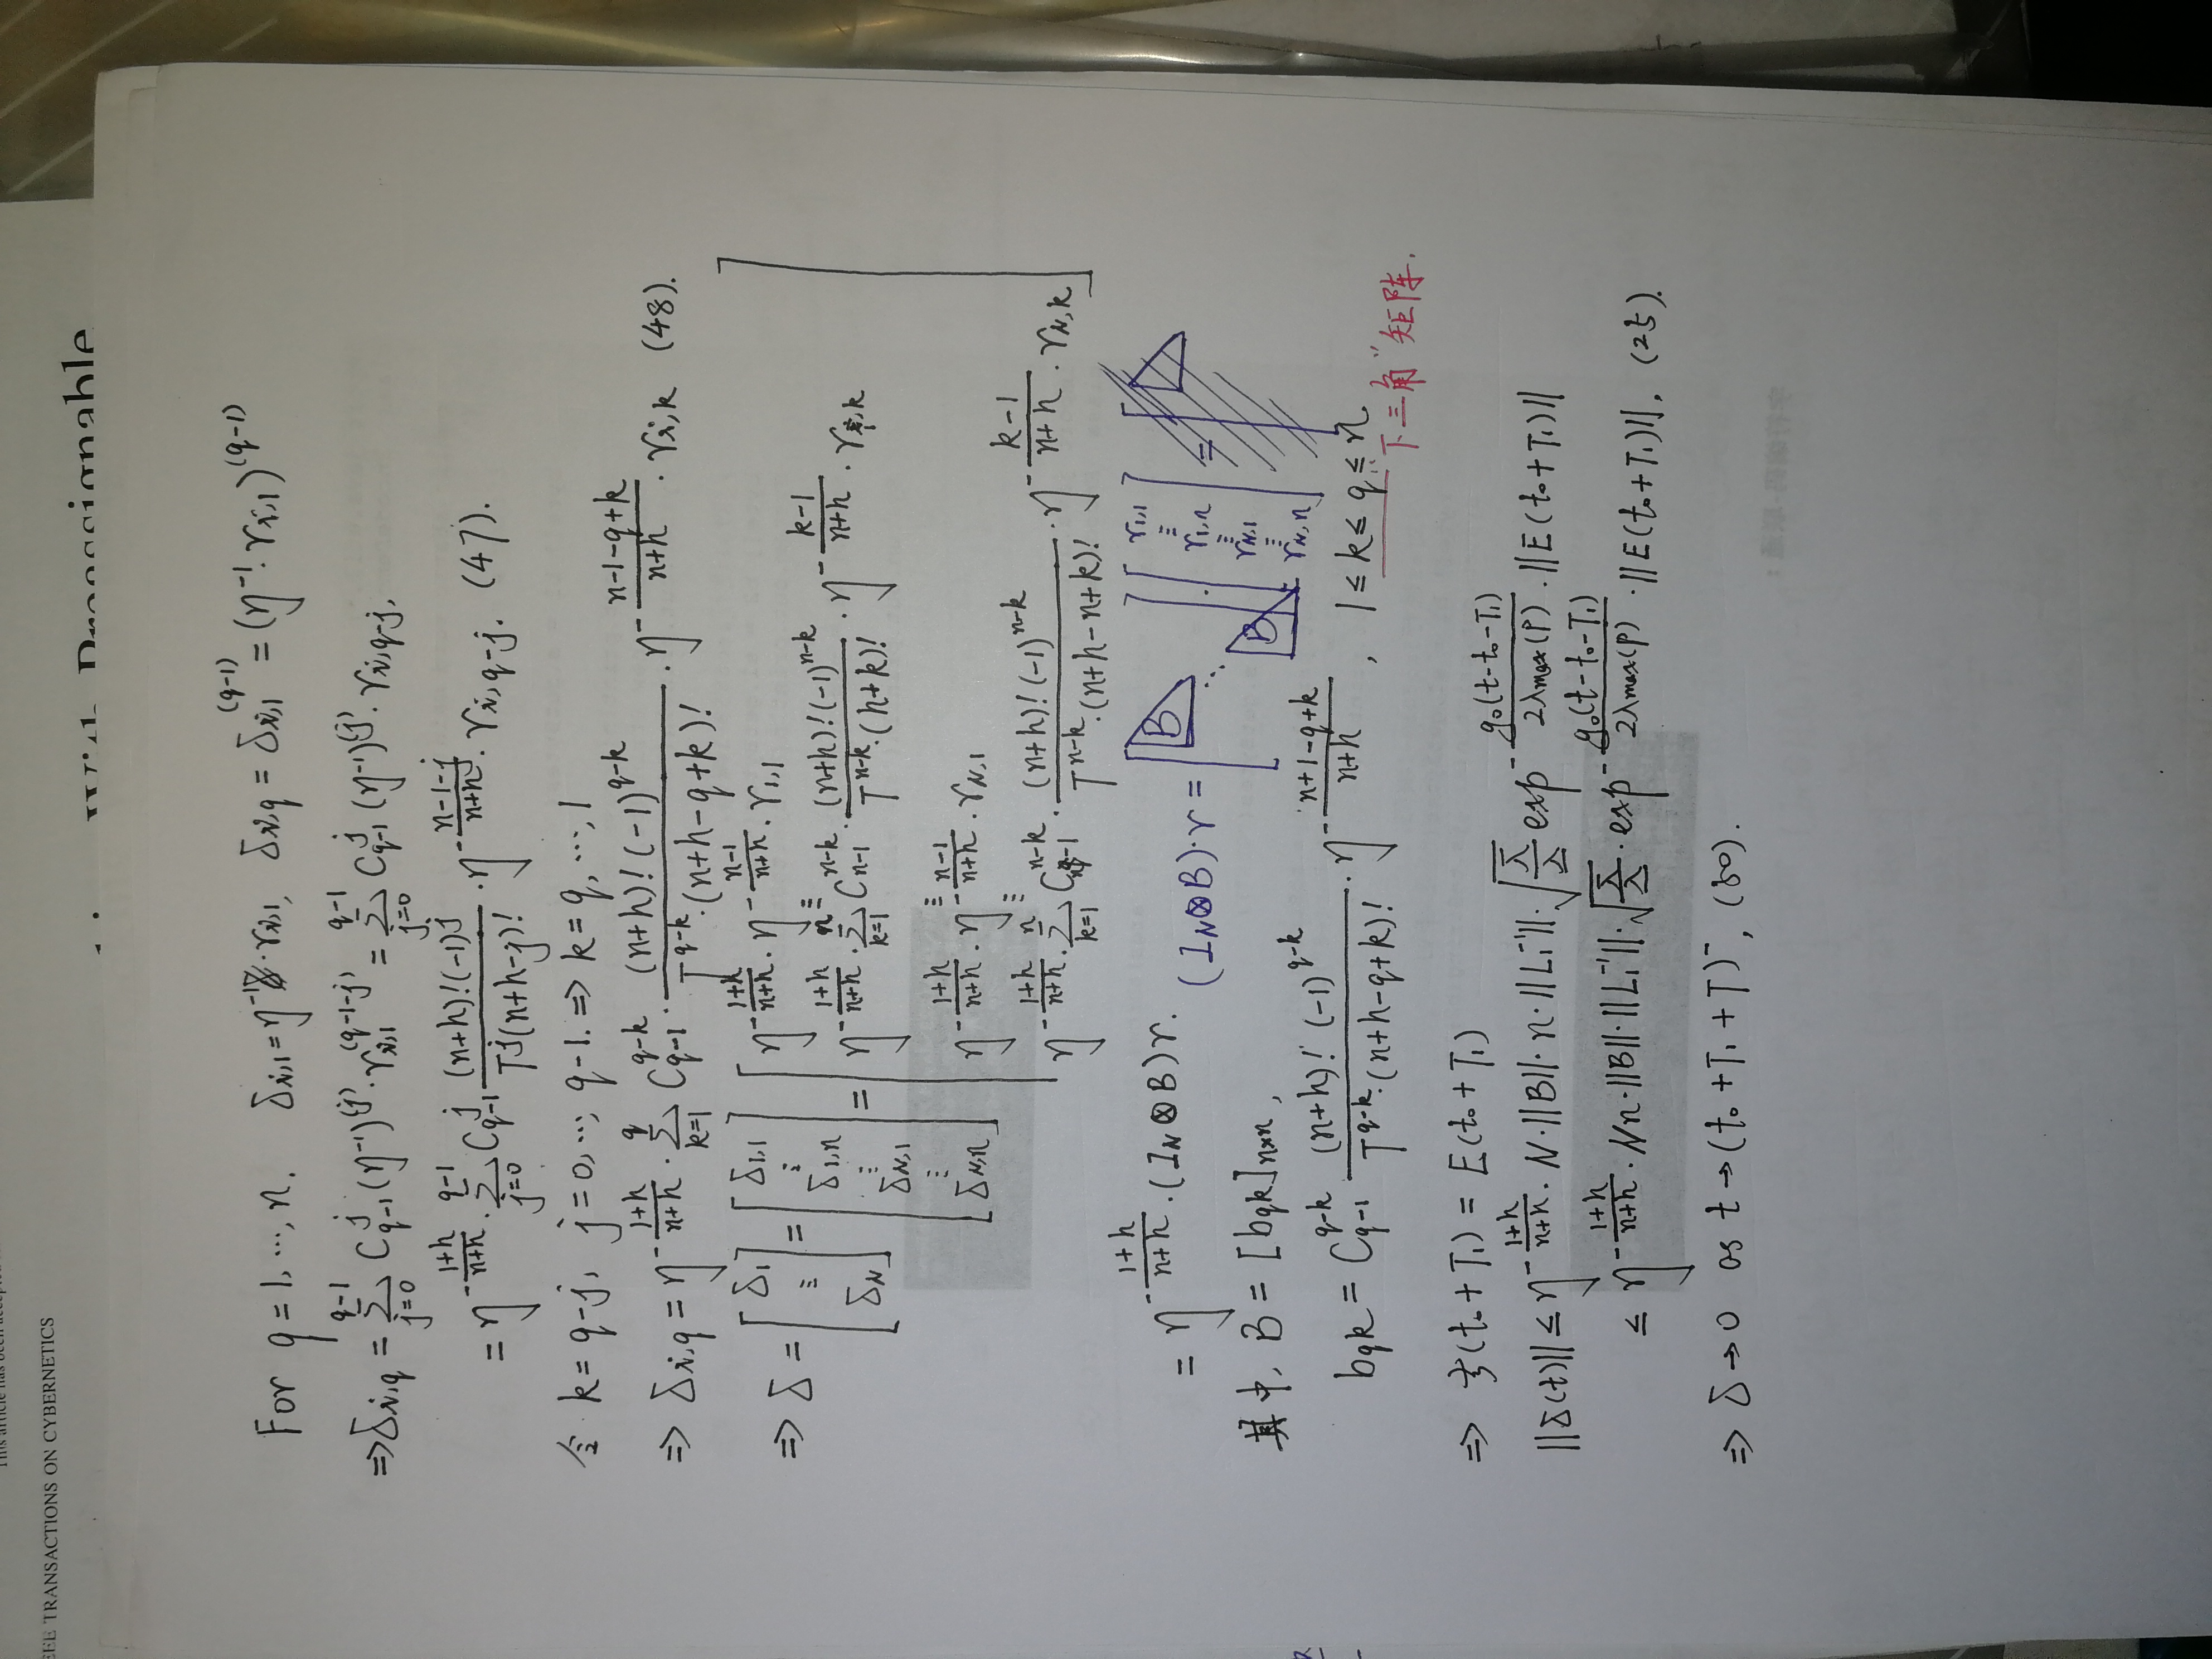 This article has been accepted
IEEE TRANSACTIONS ON CYBERNETICS
With Preassignable
For q = 1, ⋯, n. δi,1 = η^{-1} · ri,1, δi,q = δi,1^{(q-1)} = (η^{-1} · ri,1)^{(q-1)}
⇒ δi,q = Σ_{j=0}^{q-1} C_{q-1}^{j} (η^{-1})^{(j)} · ri,1^{(q-1-j)} = Σ_{j=0}^{q-1} C_{q-1}^{j} (η^{-1})^{(j)} · ri,q-j,
= η^{-\frac{1+h}{n+h}} · Σ_{j=0}^{q-1} C_{q-1}^{j} \frac{(n+h)!(-1)^j}{T^j(n+h-j)!} · η^{-\frac{n-1-j}{n+h}} · ri,q-j. (47).
令 k = q-j, j = 0, ⋯, q-1. ⇒ k = q, ⋯, 1
⇒ δi,q = η^{-\frac{1+h}{n+h}} · Σ_{k=1}^{q} C_{q-1}^{q-k} · \frac{(n+h)!(-1)^{q-k}}{T^{q-k}·(n+h-q+k)!} · η^{-\frac{n-1-q+k}{n+h}} · ri,k (48).
⇒ δ = [δ1 ⋮ δN] = [δ1,1 ⋮ δ1,n ⋮ δN,1 ⋮ δN,n] = [ η^{-\frac{1+h}{n+h}} · η^{-\frac{n-1}{n+h}} · r1,1
⋮
η^{-\frac{1+h}{n+h}} · Σ_{k=1}^{n} C_{n-1}^{n-k} · \frac{(n+h)!(-1)^{n-k}}{T^{n-k}·(h+k)!} · η^{-\frac{k-1}{n+h}} · r1,k
⋮
η^{-\frac{1+h}{n+h}} · η^{-\frac{n-1}{n+h}} · rN,1
⋮
η^{-\frac{1+h}{n+h}} · Σ_{k=1}^{n} C_{n-1}^{n-k} · \frac{(n+h)!(-1)^{n-k}}{T^{n-k}·(n+h-n+k)!} · η^{-\frac{k-1}{n+h}} · rN,k ]
= η^{-\frac{1+h}{n+h}} · (IN ⊗ B) r. (IN ⊗ B) · r = [B ⋱ B] · [r1,1 ⋮ r1,n ⋮ rN,1 ⋮ rN,n] =
其中, B = [bqk]n×n,
bqk = C_{q-1}^{q-k} \frac{(n+h)!(-1)^{q-k}}{T^{q-k}·(n+h-q+k)!} · η^{-\frac{n+1-q+k}{n+h}}, 1 ≤ k ≤ q ≤ n.
"下三角"矩阵.
⇒ ξ(t0+T1) = E(t0+T1)
||δ(t)|| ≤ η^{-\frac{1+h}{n+h}} · N · ||B|| · n · ||L1^{-1}|| · \sqrt{\frac{\overline{λ}}{\underline{λ}}} exp^{-\frac{g0(t-t0-T1)}{2λmax(P)}} · ||E(t0+T1)||
≤ η^{-\frac{1+h}{n+h}} · Nn · ||B|| · ||L1^{-1}|| · \sqrt{\frac{\overline{λ}}{\underline{λ}}} · exp^{-\frac{g0(t-t0-T1)}{2λmax(P)}} · ||E(t0+T1)||, (25).
⇒ δ → 0 as t → (t0+T1+T)^-, (50).
字符编码-联通：